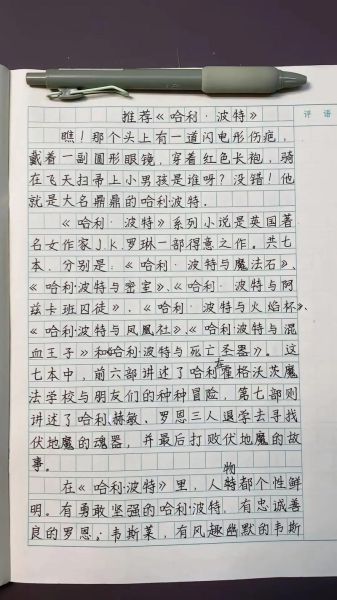 推荐《哈利·波特》
评 语
瞧！那个头上有一道闪电形伤疤，
戴着一副圆形眼镜，穿着红色长袍，骑
在飞天扫帚上小男孩是谁呀？没错！他
就是大名鼎鼎的哈利·波特．
《哈利·波特》系列小说是英国著
名女作家J.K.罗琳一部得意之作。共七
本，分别是：《哈利·波特与魔法石》、
《哈利·波特与密室》、《哈利·波特与阿
兹卡班囚徒》、《哈利·波特与火焰杯》、
《哈利·波特与凤凰社》、《哈利·波特与混
血王子》和《哈利·波特与死亡圣器》。这
七本中，前六部讲述了哈利在霍格沃茨魔
法学校与朋友们的种种冒险，第七部则
讲述了哈利、赫敏、罗恩三人退学去寻找
伏地魔的魂器，并最后打败伏地魔的故
事。
在《哈利·波特》里，人物都个性鲜
明。有勇敢坚强的哈利·波特，有忠诚善
良的罗恩·韦斯莱，有风趣幽默的韦斯